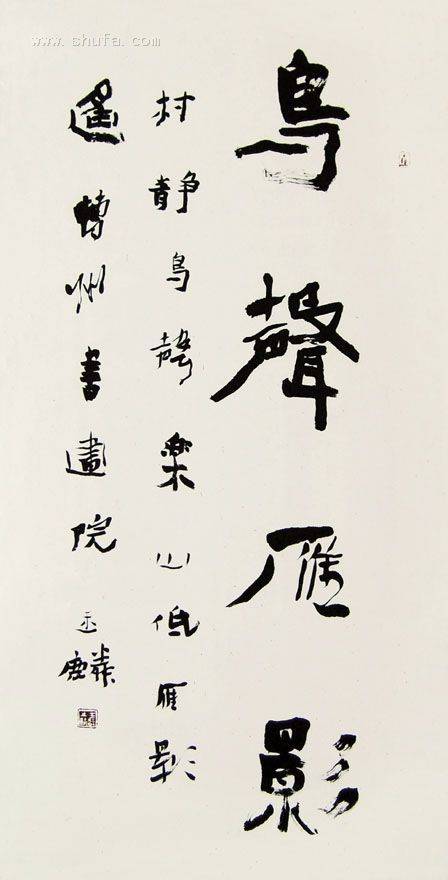 www.shufa.com
鳥聲雁影
村静鳥聲樂山低雁影
遙州書畫院玉麟